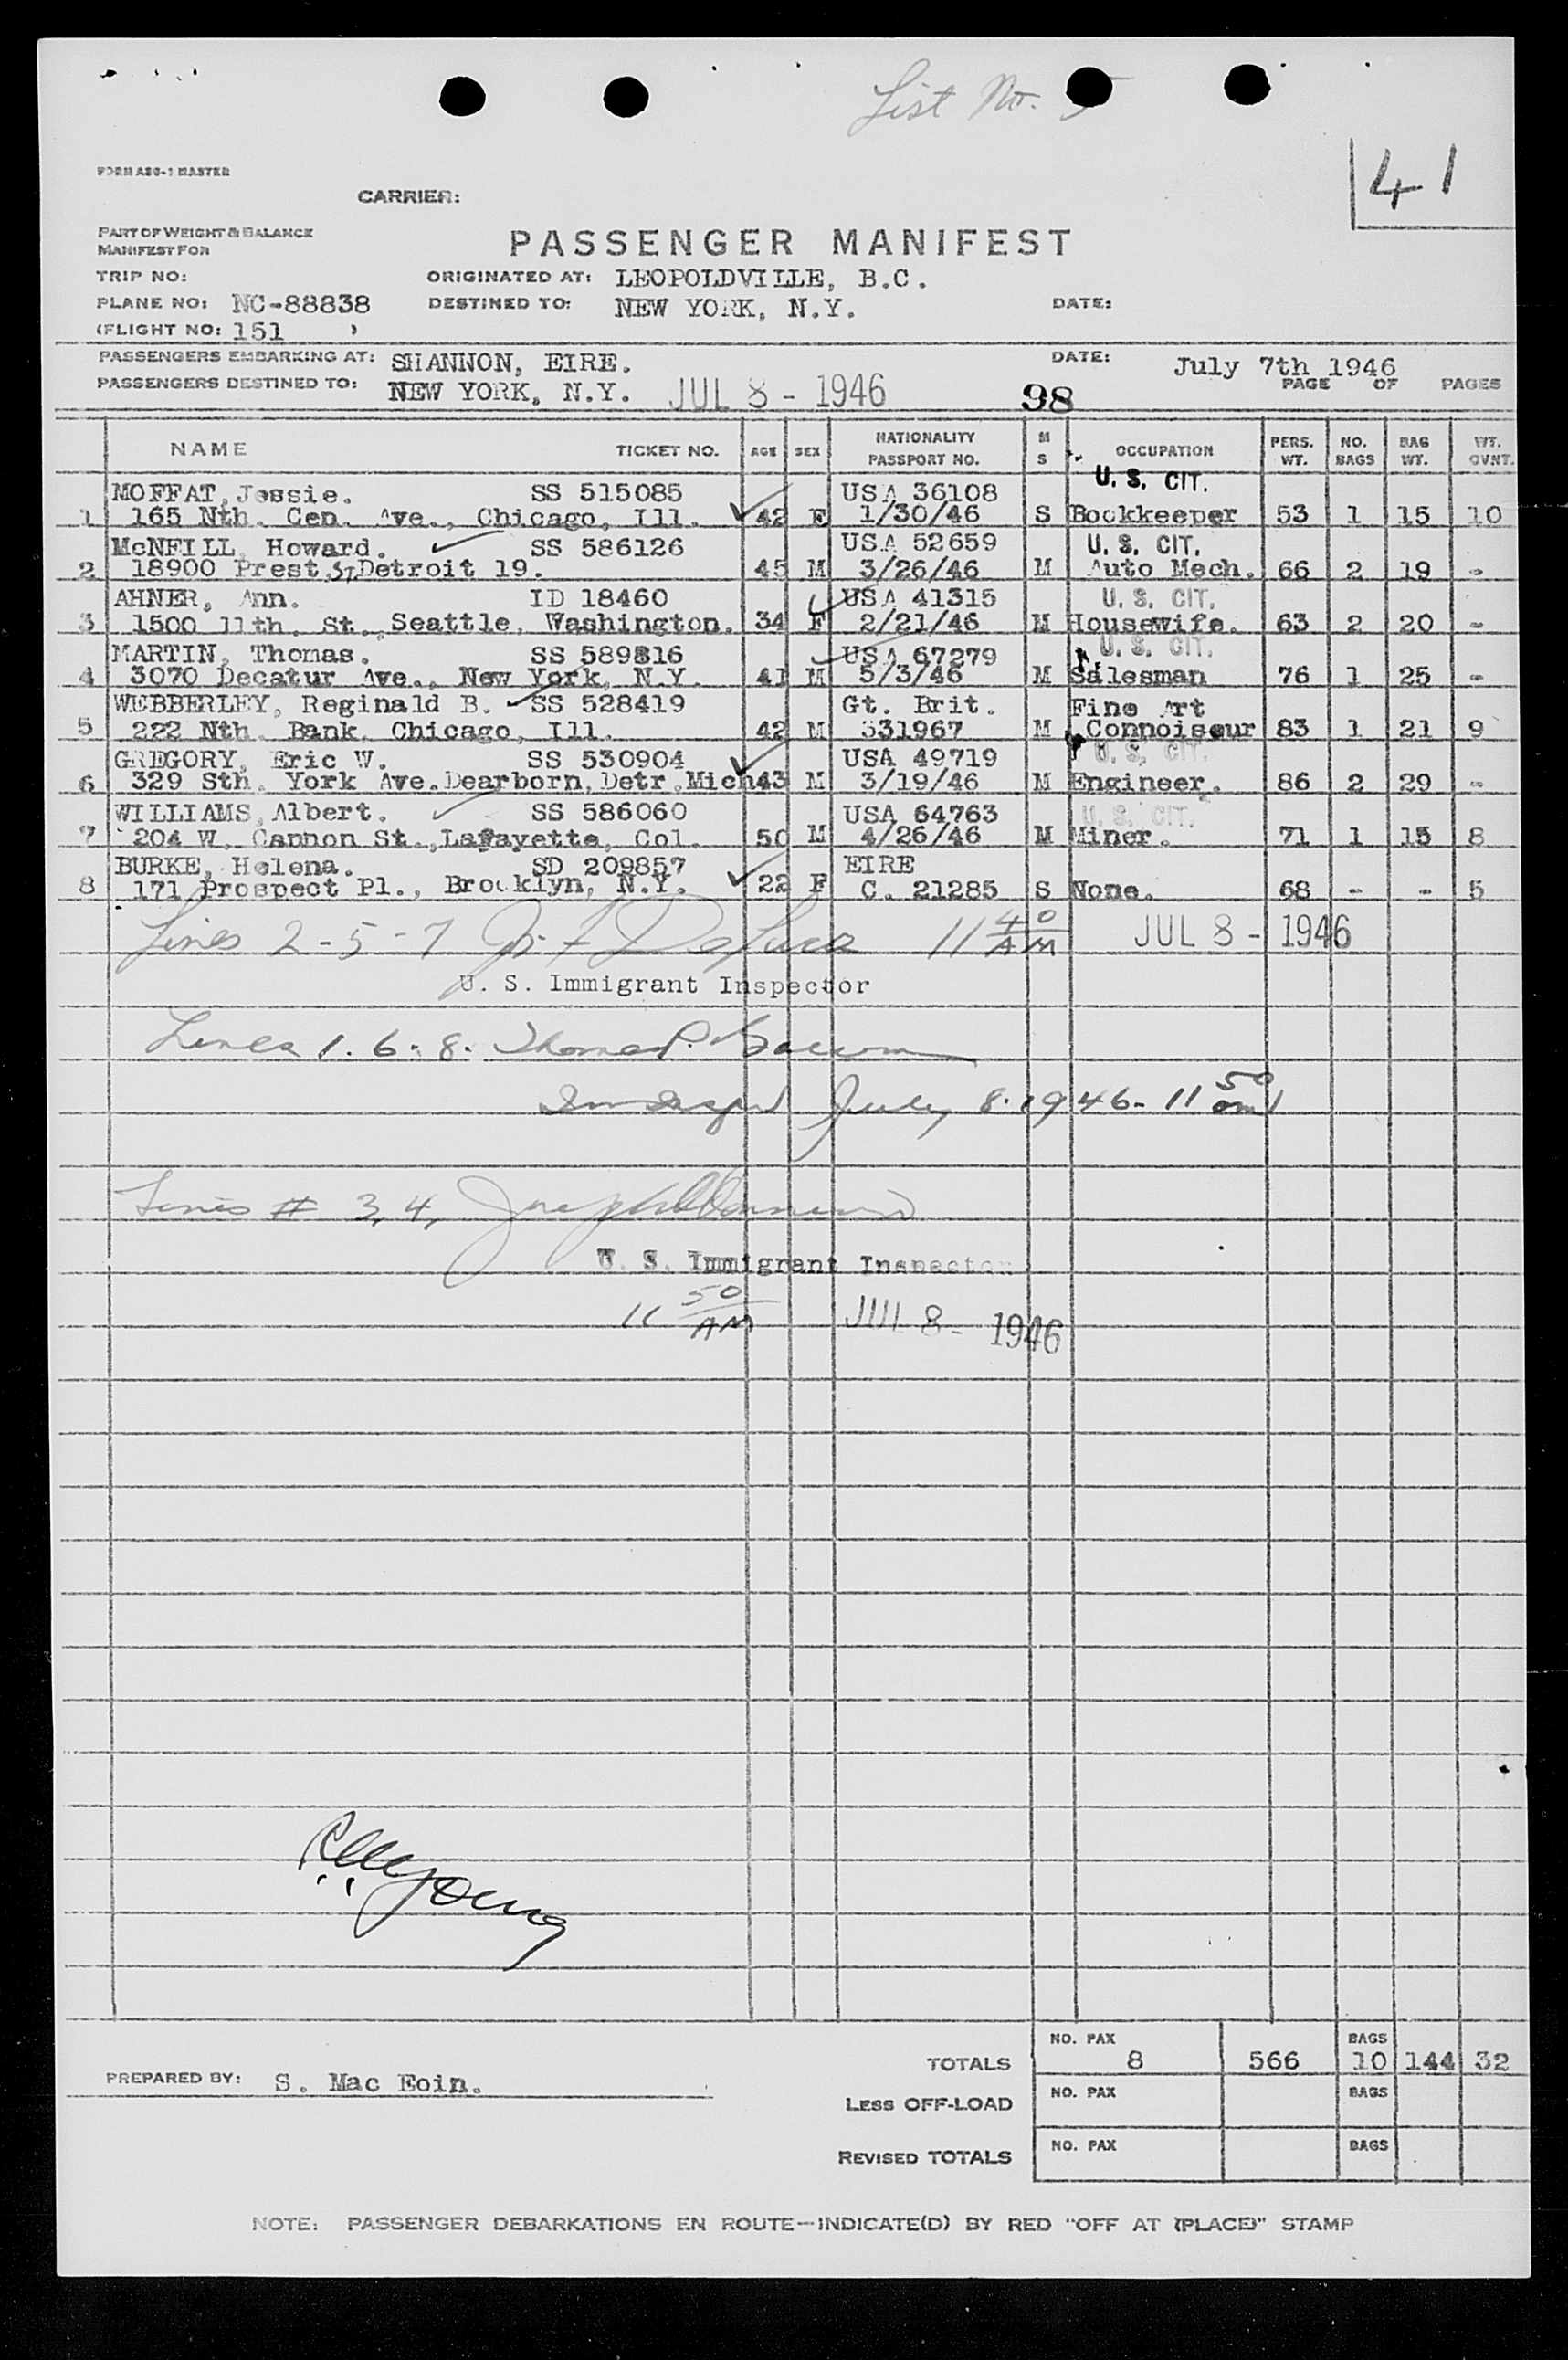 List No. 5
41
FORM ASG-1 MASTER
CARRIER:
PART OF WEIGHT & BALANCE
MANIFEST FOR
PASSENGER MANIFEST
TRIP NO: ORIGINATED AT: LEOPOLDVILLE, B.C.
PLANE NO: NC-88838 DESTINED TO: NEW YORK, N.Y. DATE:
(FLIGHT NO: 151 )
PASSENGERS EMBARKING AT: SHANNON, EIRE. DATE: July 7th 1946
PASSENGERS DESTINED TO: NEW YORK, N.Y. JUL 8 - 1946 98 PAGE OF PAGES
NAME TICKET NO. AGE SEX NATIONALITY PASSPORT NO. M S OCCUPATION PERS. WT. NO. BAGS BAG WT. WT. OVNT.
U. S. CIT.
MOFFAT, Jessie. SS 515085 USA 36108
1 165 Nth. Cen. Ave., Chicago, Ill. 42 F 1/30/46 S Bookkeeper 53 1 15 10
McNEILL, Howard. SS 586126 USA 52659 U. S. CIT.
2 18900 Prest St Detroit 19. 45 M 3/26/46 M Auto Mech. 66 2 19 -
AHNER, Ann. ID 18460 USA 41315 U. S. CIT.
3 1500 11th. St., Seattle, Washington. 34 F 2/21/46 M Housewife. 63 2 20 -
MARTIN, Thomas. SS 589816 USA 67279 U. S. CIT.
4 3070 Decatur Ave., New York, N.Y. 41 M 5/3/46 M Salesman 76 1 25 -
WEBBERLEY, Reginald B. SS 528419 Gt. Brit. Fine Art
5 222 Nth. Bank, Chicago, Ill. 42 M 531967 M Connoiseur 83 1 21 9
GREGORY, Eric W. SS 530904 USA 49719 U. S. CIT.
6 329 Sth. York Ave. Dearborn, Detr. Mich 43 M 3/19/46 M Engineer. 86 2 29 -
WILLIAMS, Albert. SS 586060 USA 64763 U. S. CIT.
7 204 W. Cannon St., Lafayette, Col. 50 M 4/26/46 M Miner. 71 1 15 8
BURKE, Helena. SD 209857 EIRE
8 171 Prospect Pl., Brooklyn, N.Y. 22 F C. 21285 S None. 68 - - 5
Lines 2-5-7 11 40 AM JUL 8 - 1946
U. S. Immigrant Inspector
Lines 1. 6. 8. Thomas P.
July 8. 1946 - 11 50 am
Lines # 3, 4,
U. S. Immigrant Inspector
11 50 AM JUL 8 - 1946
Young
NO. PAX BAGS
TOTALS 8 566 10 144 32
PREPARED BY: S. Mac Eoin.
LESS OFF-LOAD NO. PAX BAGS
REVISED TOTALS NO. PAX BAGS
NOTE: PASSENGER DEBARKATIONS EN ROUTE—INDICATE(D) BY RED "OFF AT (PLACE)" STAMP